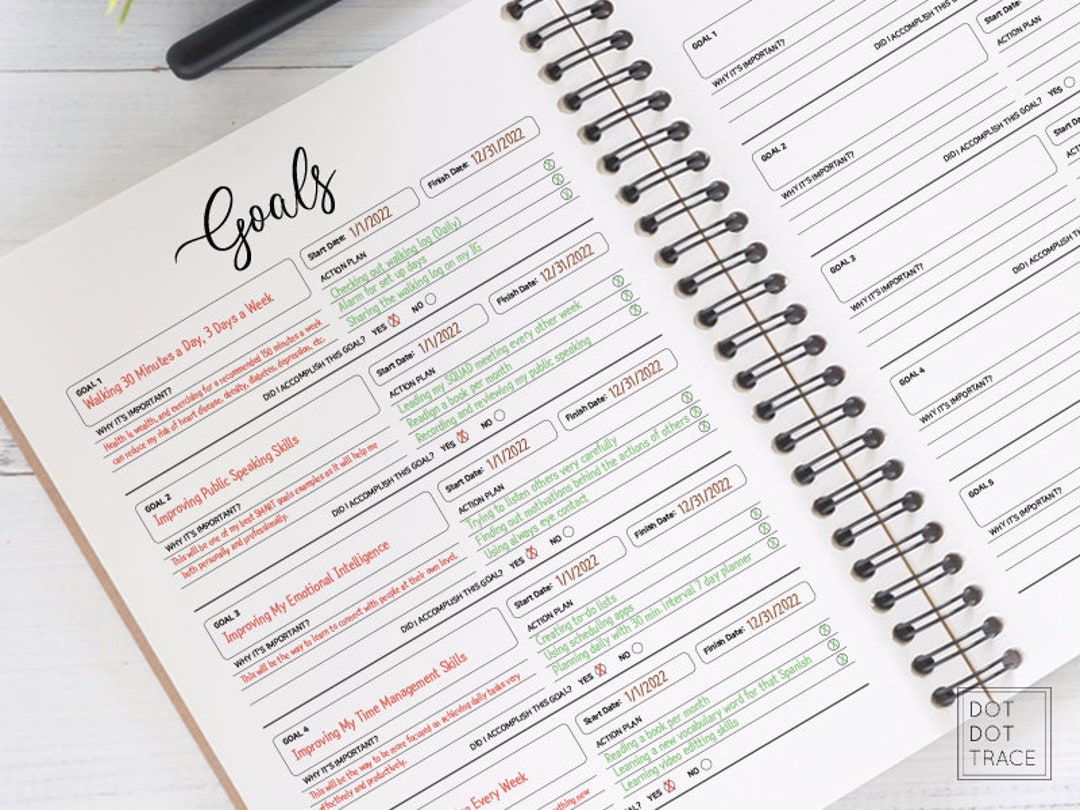 Goals
GOAL 1
Walking 30 Minutes a Day, 3 Days a Week
Start Date: 1/1/2022
Finish Date: 12/31/2022
WHY IT'S IMPORTANT?
Health is wealth, and exercising for a recommended 150 minutes a week
can reduce my risk of heart disease, obesity, diabetes, depression, etc.
ACTION PLAN
Checking out walking log (Daily)
Alarm for set up days
Sharing the walking log on my IG
DID I ACCOMPLISH THIS GOAL? YES X NO
GOAL 2
Improving Public Speaking Skills
Start Date: 1/1/2022
Finish Date: 12/31/2022
WHY IT'S IMPORTANT?
This will be one of my best SMART goals examples as it will help me
both personally and professionally.
ACTION PLAN
Leading my SQUAD meeting every other week
Readign a book per month
Recording and reviewing my public speaking
DID I ACCOMPLISH THIS GOAL? YES X NO
GOAL 3
Improving My Emotional Intelligence
Start Date: 1/1/2022
Finish Date: 12/31/2022
WHY IT'S IMPORTANT?
This will be the way to learn to connect with people at their own level.
ACTION PLAN
Trying to listen others very carefully
Finding out motivations behind the actions of others
Using always eye contact
DID I ACCOMPLISH THIS GOAL? YES X NO
GOAL 4
Improving My Time Management Skills
Start Date: 1/1/2022
Finish Date: 12/31/2022
WHY IT'S IMPORTANT?
This will be the way to be more focused on achieving daily tasks very
effectively and productively.
ACTION PLAN
Creating to-do lists
Using scheduling apps
Planning daily with 30 min. interval 7 day planner
DID I ACCOMPLISH THIS GOAL? YES X NO
Every Week
Start Date: 1/1/2022
Finish Date: 12/31/2022
something new
ACTION PLAN
Reading a book per month
Learning a new vocabulary word for that Spanish
Learning video editting skills
YES X NO
GOAL 1
Start Date:
WHY IT'S IMPORTANT?
ACTION PLAN
DID I ACCOMPLISH THIS GOAL? YES
GOAL 2
WHY IT'S IMPORTANT?
DID I ACCOMPLISH THIS
GOAL 3
WHY IT'S IMPORTANT?
DID I ACCOMPLISH
GOAL 4
WHY IT'S IMPORTANT?
GOAL 5
WHY IT'S IMPORTANT?
DOT
DOT
TRACE